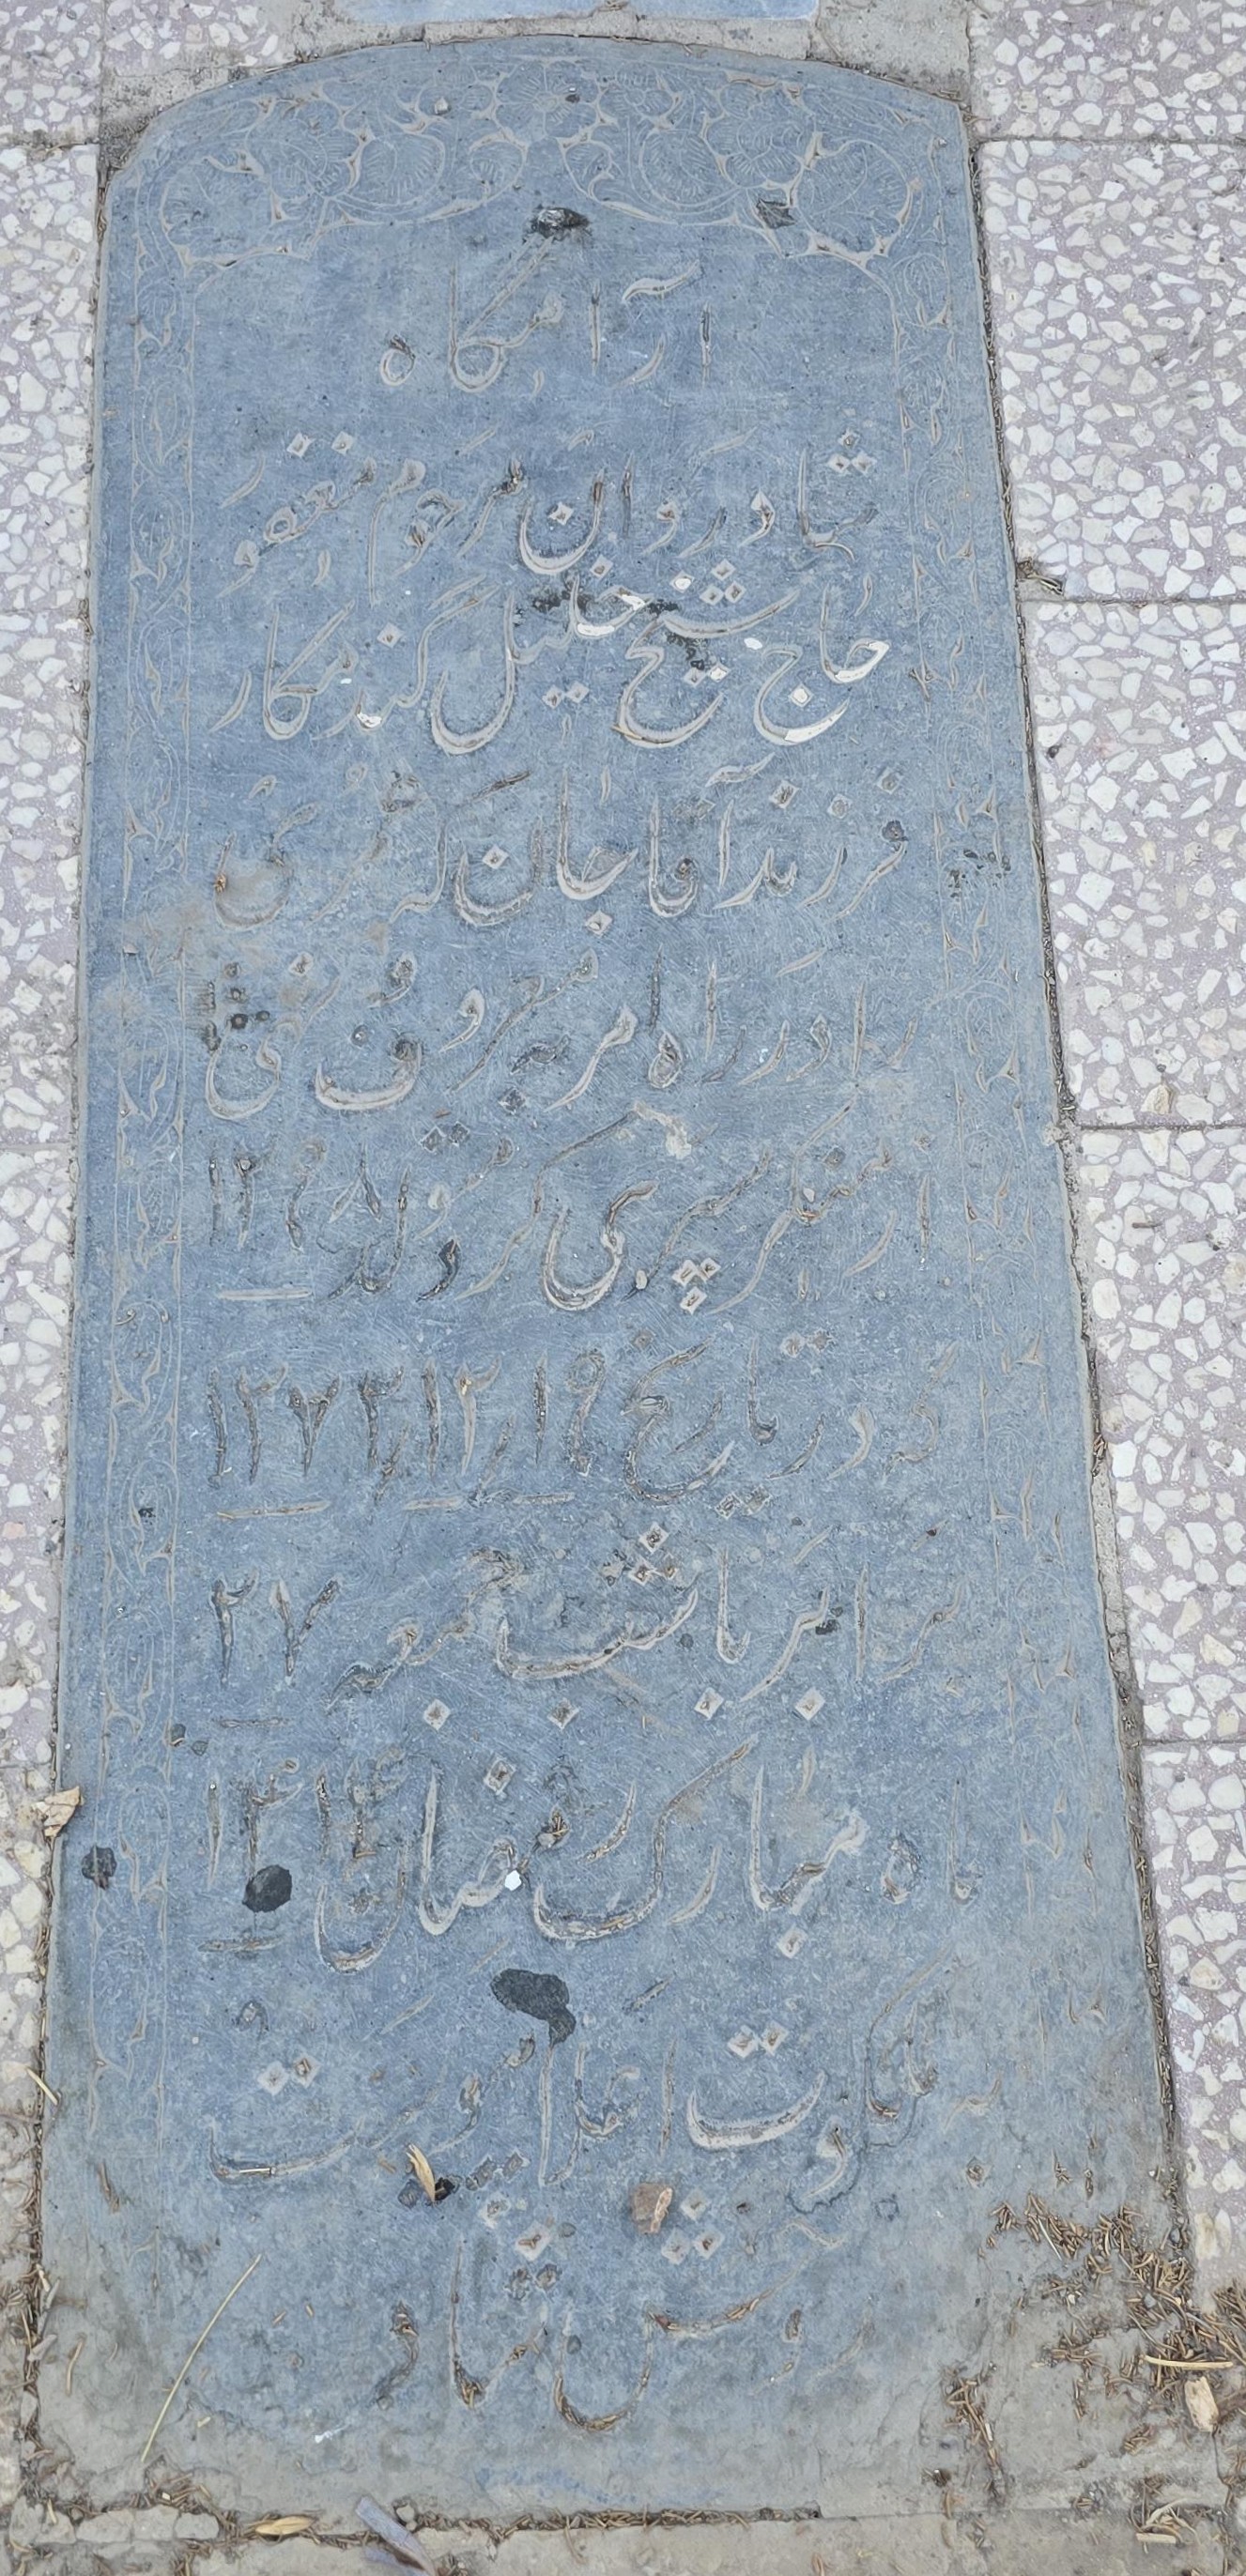 آرامگاه
شادروان مرحوم مغفور
حاج شیخ خلیل گندمکار
فرزند آقاجان که
در راه معروف نهی
از منکر سپری کرد متولد ۱۲۶۸
که در تاریخ ۱۳۷۲/۱۲/۱۹
برابر با شب جمعه ۲۷
ماه مبارک رمضان ۱۴۱۴
به ملکوت اعلا پیوست
روحش شاد